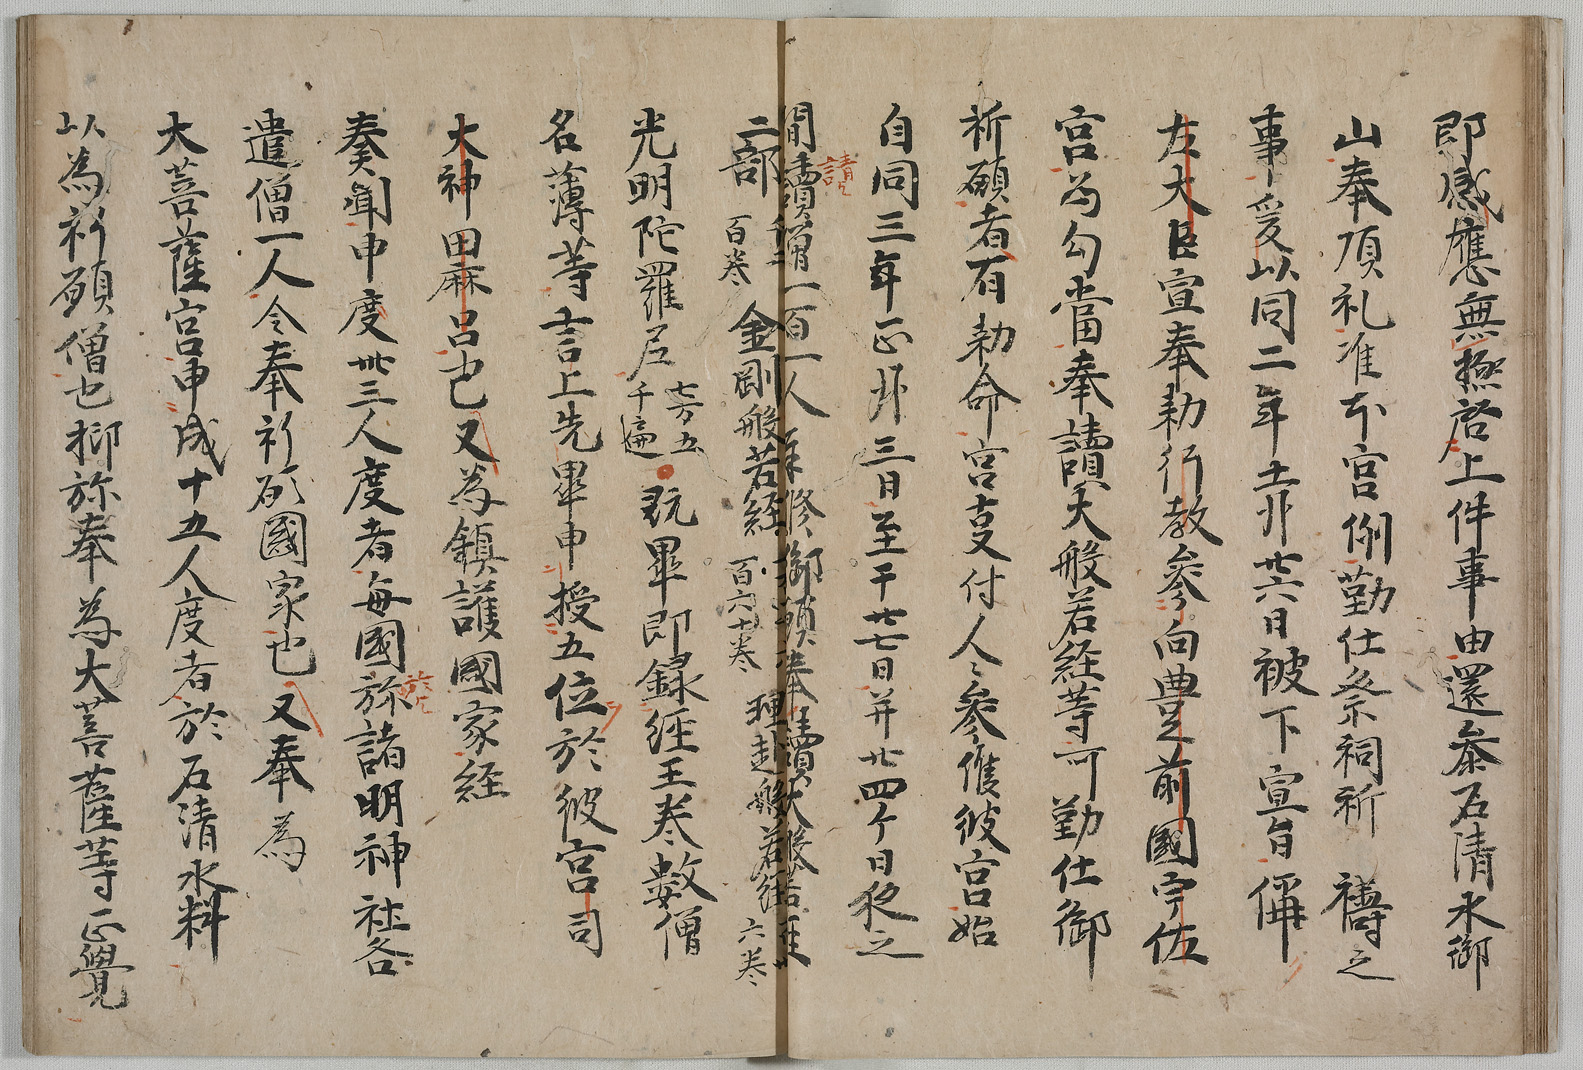 即感應無極啓上件事由還参石清水御
山奉頂礼准本宮例勤仕祭祠祈禱之
事爰以同二年十一月廿六日被下宣旨偁
左大臣宣奉勅行教参向豊前國宇佐
宮為勾當奉讀大般若経等可勤仕御
祈願者有勅命宮支付人々参傕彼宮始
自同三年正月三日至于廿七日并廿四ケ日夜之
間讀僧一百一人奉讀大般若経
請
二部百巻金剛般若経百六十巻理趣般若経六巻
光明陀羅尼七万五千遍既畢即録経王巻數僧
名薄等言上先畢申授五位於彼宮司
大神田麻呂也又為鎮護國家経
奏聞申度卅三人度者毎國於諸明神社各
於
遣僧一人令奉祈願國家也又奉為
大菩薩宮申成十五人度者於石清水料
以為祈願僧也抑祢奉為大菩薩等正覺